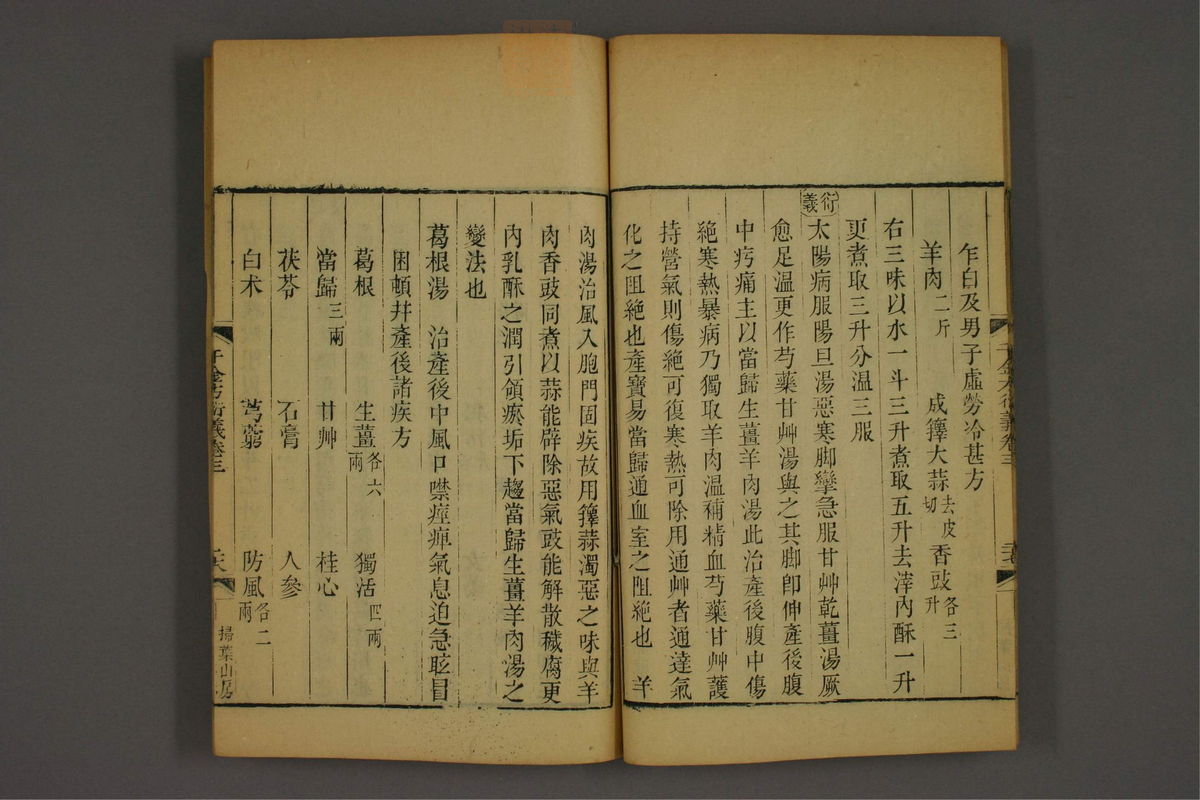 乍白及男子虛勞冷甚方
羊肉二斤　成籜大蒜去皮切　香豉各三升
右三味以水一斗三升煮取五升去滓內酥一升
更煮取三升分溫三服
衍義
太陽病服陽旦湯惡寒脚攣急服甘艸乾薑湯厥
愈足溫更作芍藥甘艸湯與之其脚卽伸產後腹
中㽲痛主以當歸生薑羊肉湯此治產後腹中傷
絕寒熱暴病乃獨取羊肉溫補精血芍藥甘艸護
持營氣則傷絕可復寒熱可除用通艸者通達氣
化之阻絕也產寶易當歸通血室之阻絕也　羊
肉湯治風入胞門固疾故用籜蒜濁惡之味與羊
肉香豉同煮以蒜能辟除惡氣豉能解散穢腐更
內乳酥之潤引領瘀垢下趨當歸生薑羊肉湯之
變法也
葛根湯　治產後中風口噤痙痺氣息迫急眩冒
困頓幷產後諸疾方
葛根　生薑各六兩　獨活四兩
當歸三兩　甘艸　桂心
茯苓　石膏　人參
白术　芎藭　防風各二兩
千金方衍義卷三
掃葉山房